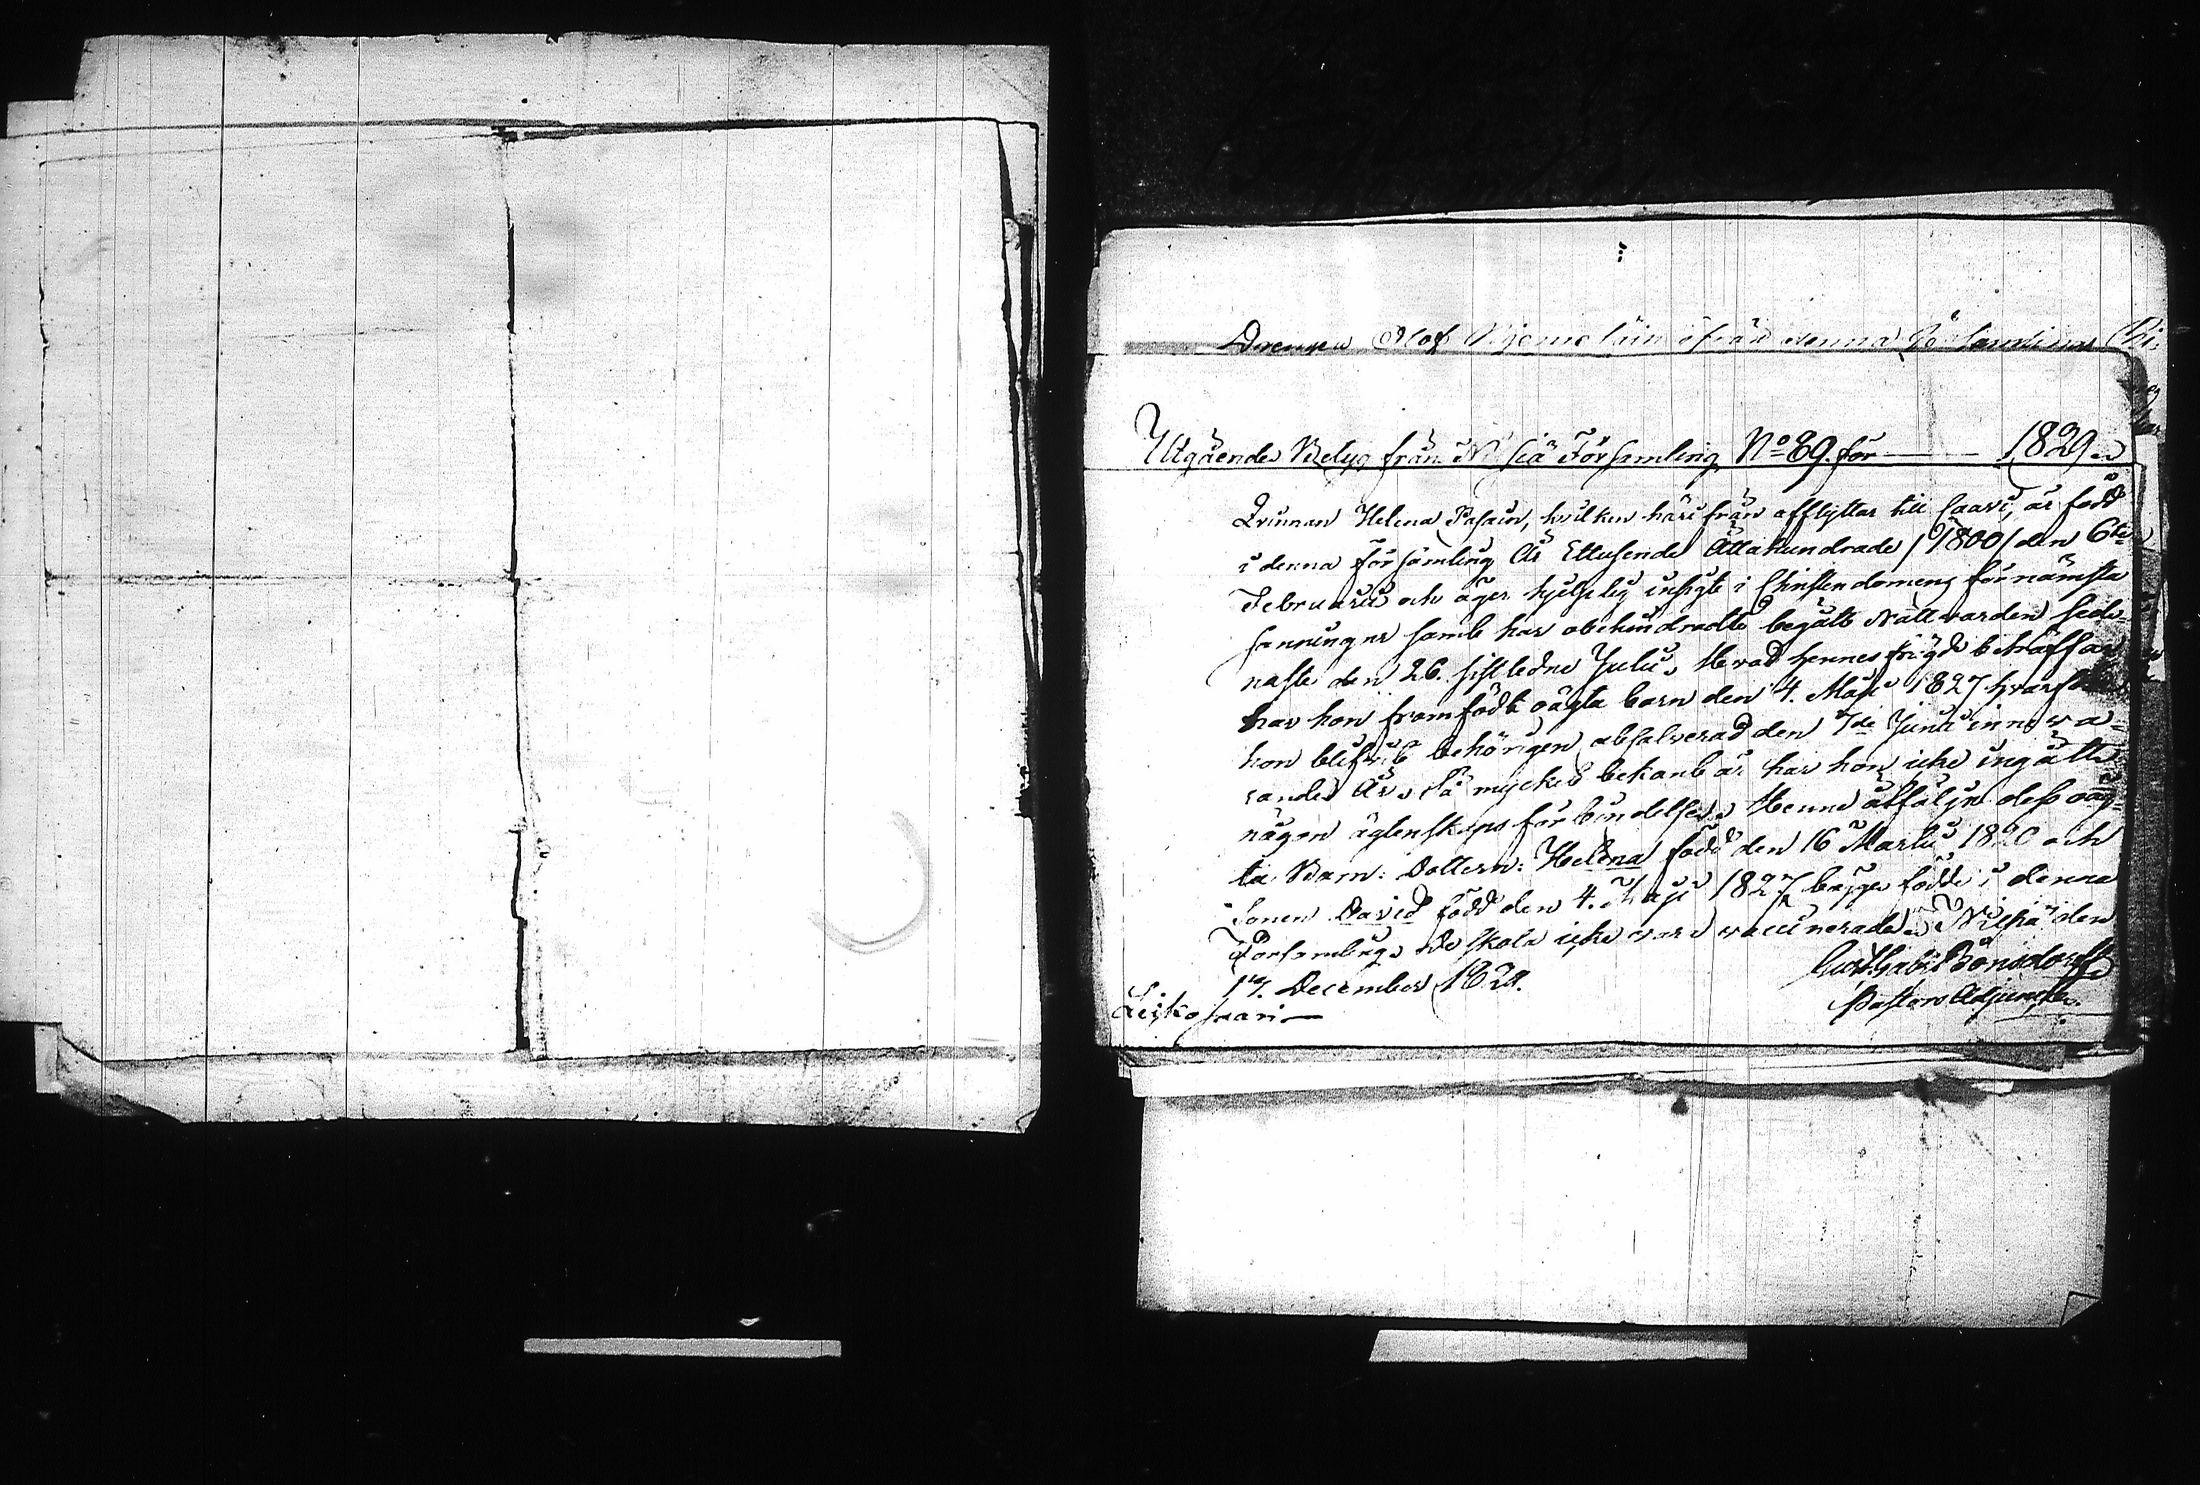 Drengen Olof ifrån denna Församling
Utgående Betyg från Nilsiä Församling No 89. för 1829.
Qvinnan Helena hvilken härifrån afflyttar till Saari, är född
i denna församling År Ettusende Åttahundrade /1800/ den 6te
Februarii och äger hjelplig insigt i Christendomens förnämsta
sanningar samt har obehindradt begått Nattvarden sede-
naste den 26. sistledne Julii. Hvad hennes frägd beträffar
har hon framfödt oägta barn den 4. Maji 1827 hvarföre
hon blifvit behörigen absolverad den 7de Junii innewa-
rande År. Så mycket bekant är har hon icke ingått
någon ägtenskaps förbindelse. Henne åtfölja dess oäg-
ta Barn: Dottern: Helena född den 16 Martii 1820 och
Sonen David född den 4. Maji 1827 bägge födde i denna
Församling. De skola icke vara vaccinerade. Nilsiä den
17. December 1829. Gust. Gab. Bonsdorff
Pastors Adjunct.
Leikosaari